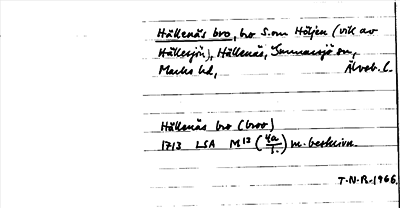 Hällenäs bro, bro S. om Höljen (vik av
Hällesjön), Hällenäs, Gunnarsjö sn,
Marks hd, Älvsb. l.
Hällenäs bro (broo)
1713 LSA M13 (4a/1.) m. beskrivn.
T.N.R. 1966.